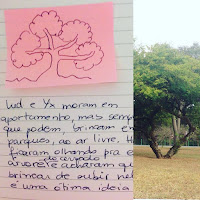 Lud e Yx moram em
apartamento, mas sempre
que podem, brincam em
parques, ao ar livre.
ficaram olhando pra
de cerrado
árvore e acharam que
brincar de subir
é uma ótima ideia